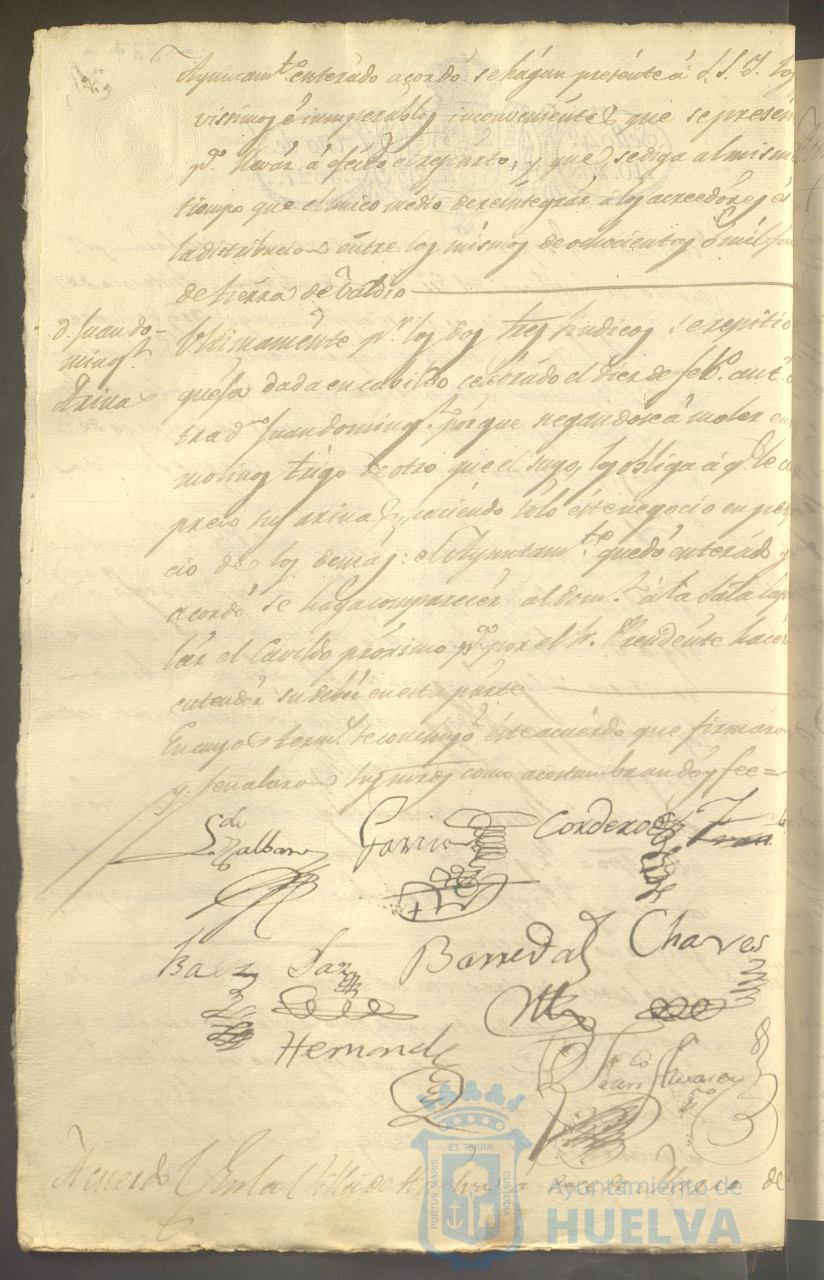 Ayuntam.to enterado acordó se hagan presente á S. S. Y. los
vissimos é insuperables inconvenientes que se presen
p.a llevár á efecto el reparto, y que se diga al mismo
tiempo que el unico médio de reintegrár á los acreedóres és
la distribucion entre los mismos de ochocientas ó mil fa
de tierra de Valdio
D. Juan Do-
ming.z
Arina
Ultimamente p.r los dos Sres. Sindicos se repitio
quexa dada en cavildo celebrado el diez de feb.o ant.r
tra d.n Juan Doming.z porque negandose á moler en
molinos trigo de otro que el suyo, los obliga á q.e le
precio su arina, haciendo sólo éste negocio en per
cio de los demas: el Ayuntam.to quedó enterádo y
acordó se haga comparecér al dom.z á la Sala Capi
lár el Cavildo próximo p.a q.e por el Sr. Precidénte hacér
entendér su debér en esta parte
En cuyos term.s se concluyó éste acuérdo que firmáron
y señalaron sus mrds como acostumbran doy fee =
Garcia Cordero
Baez Saz Barreda Chaves
Hernandz
Acuerdo En la Villa de Huelva de
ET TERRÆ
PORTUS MARIS
CUSTODIA
Ayuntamiento de
HUELVA